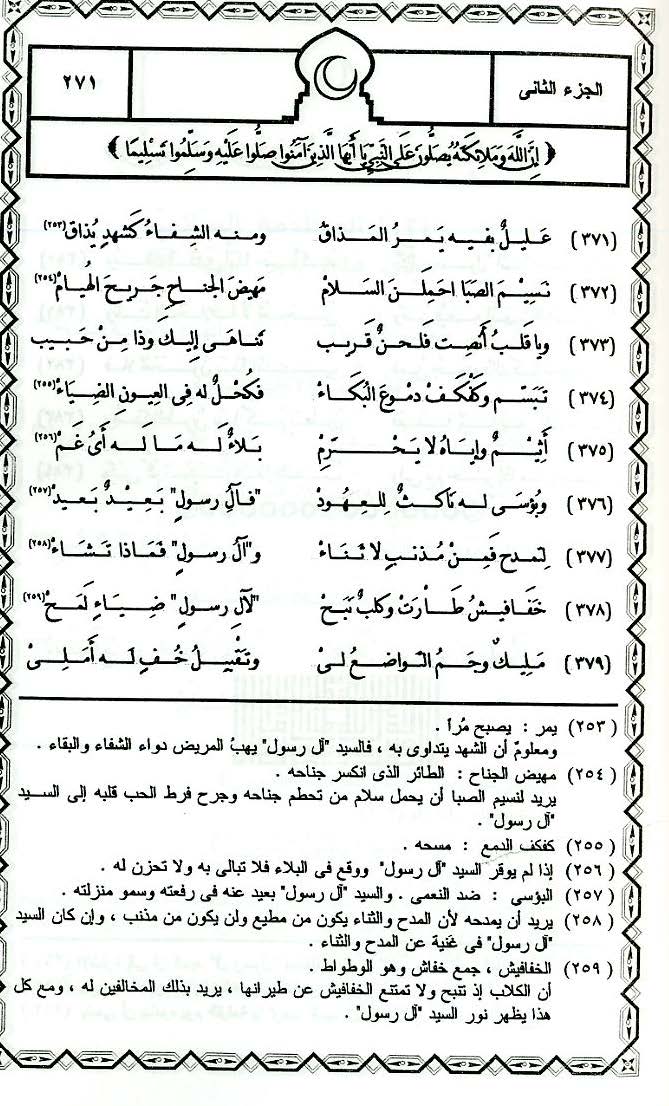 الجزء الثانى
٢٧١
﴿ إِنَّ اللَّهَ وَمَلَائِكَتَهُ يُصَلُّونَ عَلَى النَّبِيِّ يَا أَيُّهَا الَّذِينَ آمَنُوا صَلُّوا عَلَيْهِ وَسَلِّمُوا تَسْلِيمًا ﴾
(٣٧١) عَليلٌ بفيه يَمرُ المَذاقُ ومنه الشفاءُ كَشهدٍ يُذاقْ(٢٥٣)
(٣٧٢) نَسيْمَ الصَبَا احمِلَن السَلامْ مَهيضَ الجَناحِ جَريحَ الهيامْ(٢٥٤)
(٣٧٣) ويا قلبُ أنصِت فَلحنٌ قَريب تَناهَى إليكَ وذا مِنْ حَبيب
(٣٧٤) تَبَسَّم وكَفكَفْ دموعَ البُكاءْ فكُحْلٌ له فى العيون الضيَاءْ(٢٥٥)
(٣٧٥) أثِيْمٌ وإيَاهُ لا يَحْترِمْ بَلاءٌ لَه مَا لَه أىُ غَمْ(٢٥٦)
(٣٧٦) وبُؤسَى له نَاكثٌ للعهُودْ "فآلُ رسولٍ" بَعيدٌ بَعيدْ(٢٥٧)
(٣٧٧) لتمدح فَمِنْ مُذنبٍ لا ثناءْ و"آلُ رسولٍ" فَمَاذا تَشاءْ(٢٥٨)
(٣٧٨) خَفَافيشُ طَارَتْ وكلبٌ نَبَحْ "لآلِ رسولٍ" ضِيَاءٍ لَمَحْ(٢٥٩)
(٣٧٩) مَلِيكٌ وجَمُ التواضعُ لىْ وتَقْبيلُ خُفٍ لَه أمَلِىْ
(٢٥٣) يمر : يصبح مُراً .
ومعلومٌ أن الشهد يتداوى به ، فالسيد "آل رسول" يهبُ المريض دواء الشفاء والبقاء .
(٢٥٤) مهيض الجناح : الطائر الذى انكسر جناحه .
يريد لنسيم الصبا أن يحمل سلام من تحطم جناحه وجرح فرط الحب قلبه إلى السيد
"آل رسول" .
(٢٥٥) كفكف الدمع : مسحه .
(٢٥٦) إذا لم يوقر السيد "آل رسول" ووقع فى البلاء فلا تبالى به ولا تحزن له .
(٢٥٧) البؤسى : ضد النعمى . والسيد "آل رسول" بعيد عنه فى رفعته وسمو منزلته .
(٢٥٨) يريد أن يمدحه لأن المدح والثناء يكون من مطيع ولن يكون من مذنب ، وإن كان السيد
"آل رسول" فى غنية عن المدح والثناء .
(٢٥٩) الخفافيش ، جمع خفاش وهو الوطواط .
أن الكلاب إذ تنبح ولا تمتنع الخفافيش عن طيرانها ، يريد بذلك المخالفين له ، ومع كل
هذا يظهر نور السيد "آل رسول" .